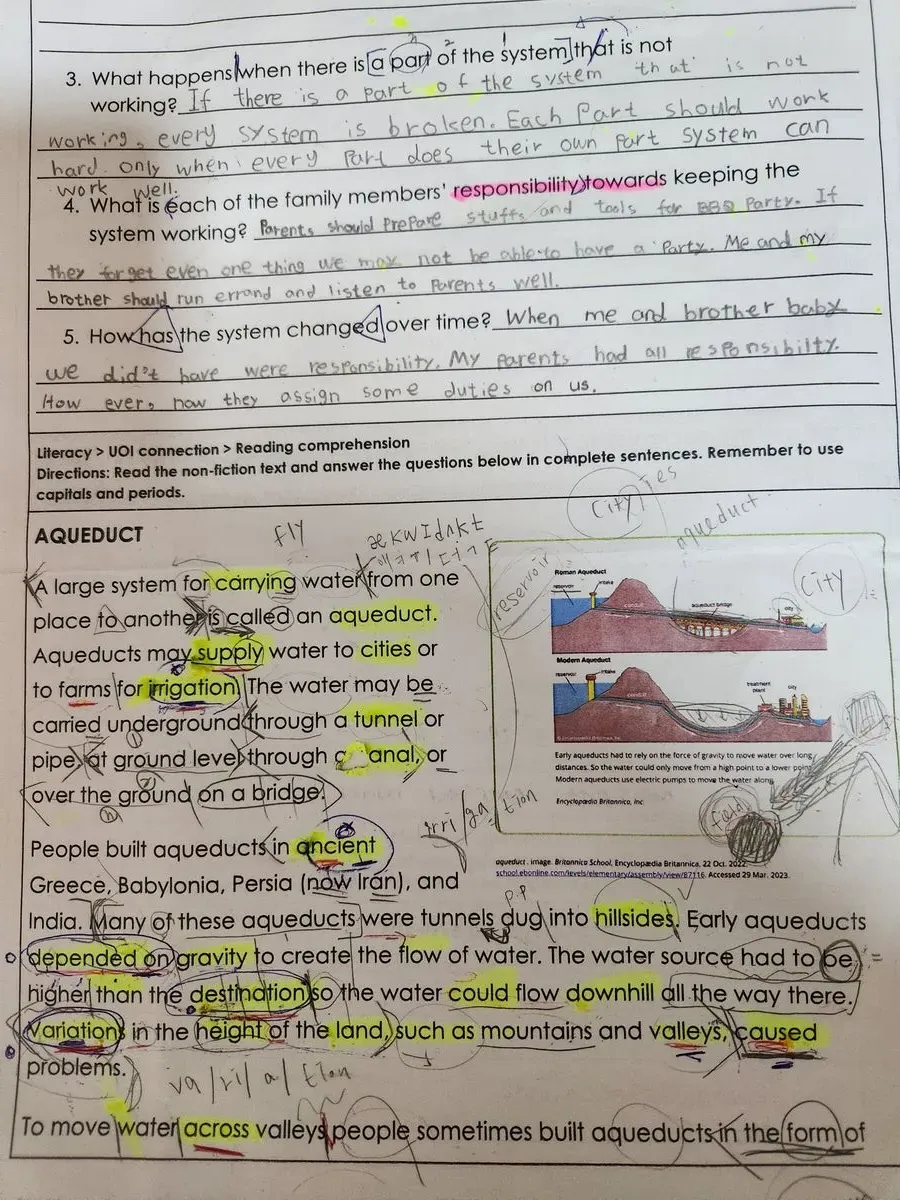 3. What happens when there is a part of the system that is not
working? If there is a part of the system that is not
working, every system is broken. Each Part should work
hard. only when every Part does their own Part system can
work well.
4. What is each of the family members' responsibility towards keeping the
system working? Parents should prepare stuffs and tools for BBQ Party. If
they forget even one thing we may not be able to have a Party. Me and my
brother should run errand and listen to Parents well.
5. How has the system changed over time? When me and brother baby
we did't have were responsibility. My parents had all responsibilty.
How ever, now they assign some duties on us.
Literacy > UOI connection > Reading comprehension
Directions: Read the non-fiction text and answer the questions below in complete sentences. Remember to use
capitals and periods.
City ies
AQUEDUCT
fly
ækwIdʌkt
aqueduct
reservoir
City
A large system for carrying water from one
place to another is called an aqueduct.
Aqueducts may supply water to cities or
to farms for irrigation. The water may be
carried underground through a tunnel or
pipe, at ground level through canal, or
over the ground on a bridge.
Roman Aqueduct
reservoir
intake
conduit
aqueduct bridge
city
Modern Aqueduct
reservoir
intake
conduit
treatment
plant
city
Early aqueducts had to rely on the force of gravity to move water over long
distances. So the water could only move from a high point to a lower point.
Modern aqueducts use electric pumps to move the water along.
Encyclopædia Britannica, Inc.
irri/ga/tion
aqueduct. image. Britannica School, Encyclopædia Britannica, 22 Oct. 2022.
school.ebonline.com/levels/elementary/assembly/view/87116. Accessed 29 Mar. 2023.
People built aqueducts in ancient
Greece, Babylonia, Persia (now Iran), and
P.P
India. Many of these aqueducts were tunnels dug into hillsides. Early aqueducts
depended on gravity to create the flow of water. The water source had to be
higher than the destination so the water could flow downhill all the way there.
Variations in the height of the land, such as mountains and valleys, caused
problems.
va/ri/a/tion
To move water across valleys people sometimes built aqueducts in the form of